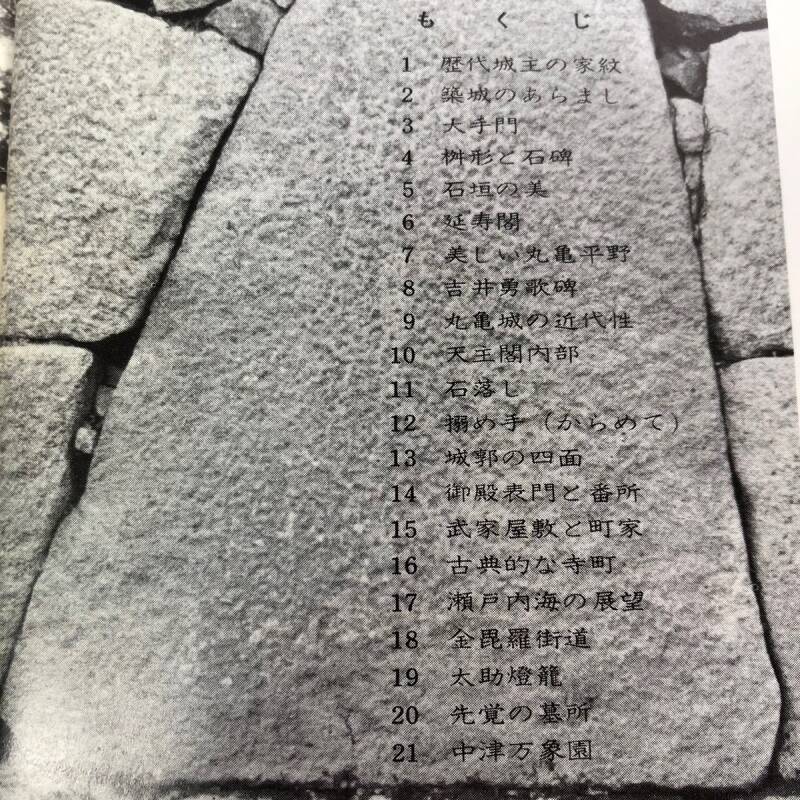 もくじ
1 歴代城主の家紋
2 築城のあらまし
3 大手門
4 桝形と石碑
5 石垣の美
6 延寿閣
7 美しい丸亀平野
8 吉井勇歌碑
9 丸亀城の近代性
10 天主閣内部
11 石落し
12 搦め手（からめて）
13 城郭の四面
14 御殿表門と番所
15 武家屋敷と町家
16 古典的な寺町
17 瀬戸内海の展望
18 金毘羅街道
19 太助燈籠
20 先覚の墓所
21 中津万象園